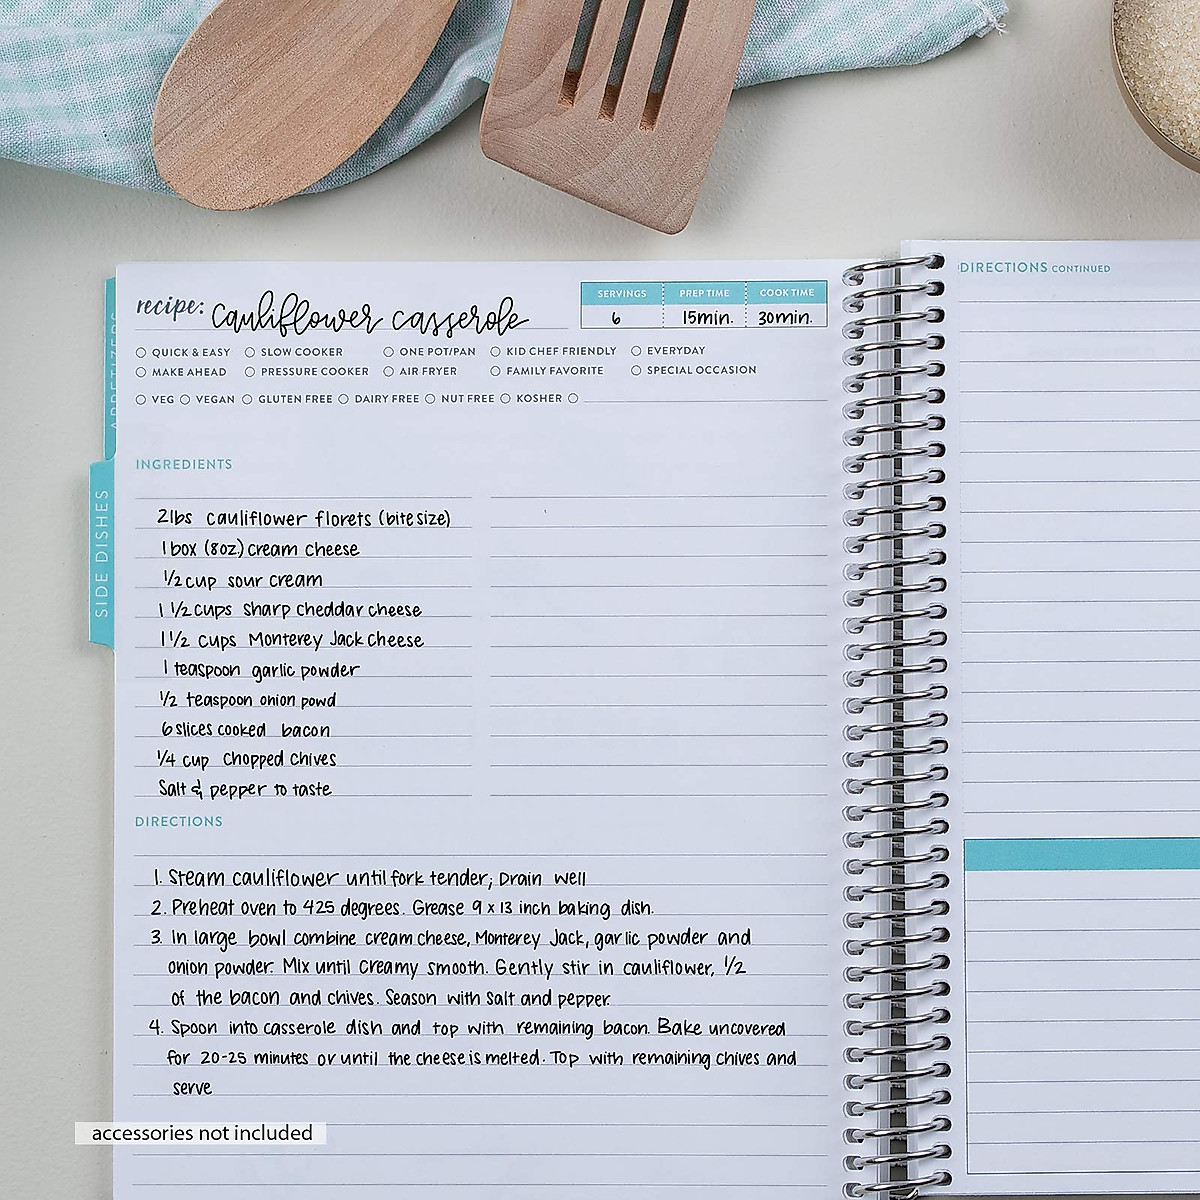 recipe: cauliflower casserole
SERVINGS PREP TIME COOK TIME
6 15min. 30min.
QUICK & EASY SLOW COOKER ONE POT/PAN KID CHEF FRIENDLY EVERYDAY
MAKE AHEAD PRESSURE COOKER AIR FRYER FAMILY FAVORITE SPECIAL OCCASION
VEG VEGAN GLUTEN FREE DAIRY FREE NUT FREE KOSHER
APPETIZERS
SIDE DISHES
INGREDIENTS
2lbs cauliflower florets (bite size)
1 box (8oz.) cream cheese
1/2 cup sour cream
1 1/2 cups sharp cheddar cheese
1 1/2 cups Monterey Jack cheese
1 teaspoon garlic powder
1/2 teaspoon onion powd
6 slices cooked bacon
1/4 cup chopped chives
Salt & pepper to taste
DIRECTIONS
1. Steam cauliflower until fork tender; Drain well
2. Preheat oven to 425 degrees. Grease 9 x 13 inch baking dish.
3. In large bowl combine cream cheese, Monterey Jack, garlic powder and
onion powder. Mix until creamy smooth. Gently stir in cauliflower, 1/2
of the bacon and chives. Season with salt and pepper.
4. Spoon into casserole dish and top with remaining bacon. Bake uncovered
for 20-25 minutes or until the cheese is melted. Top with remaining chives and
serve
DIRECTIONS CONTINUED
accessories not included